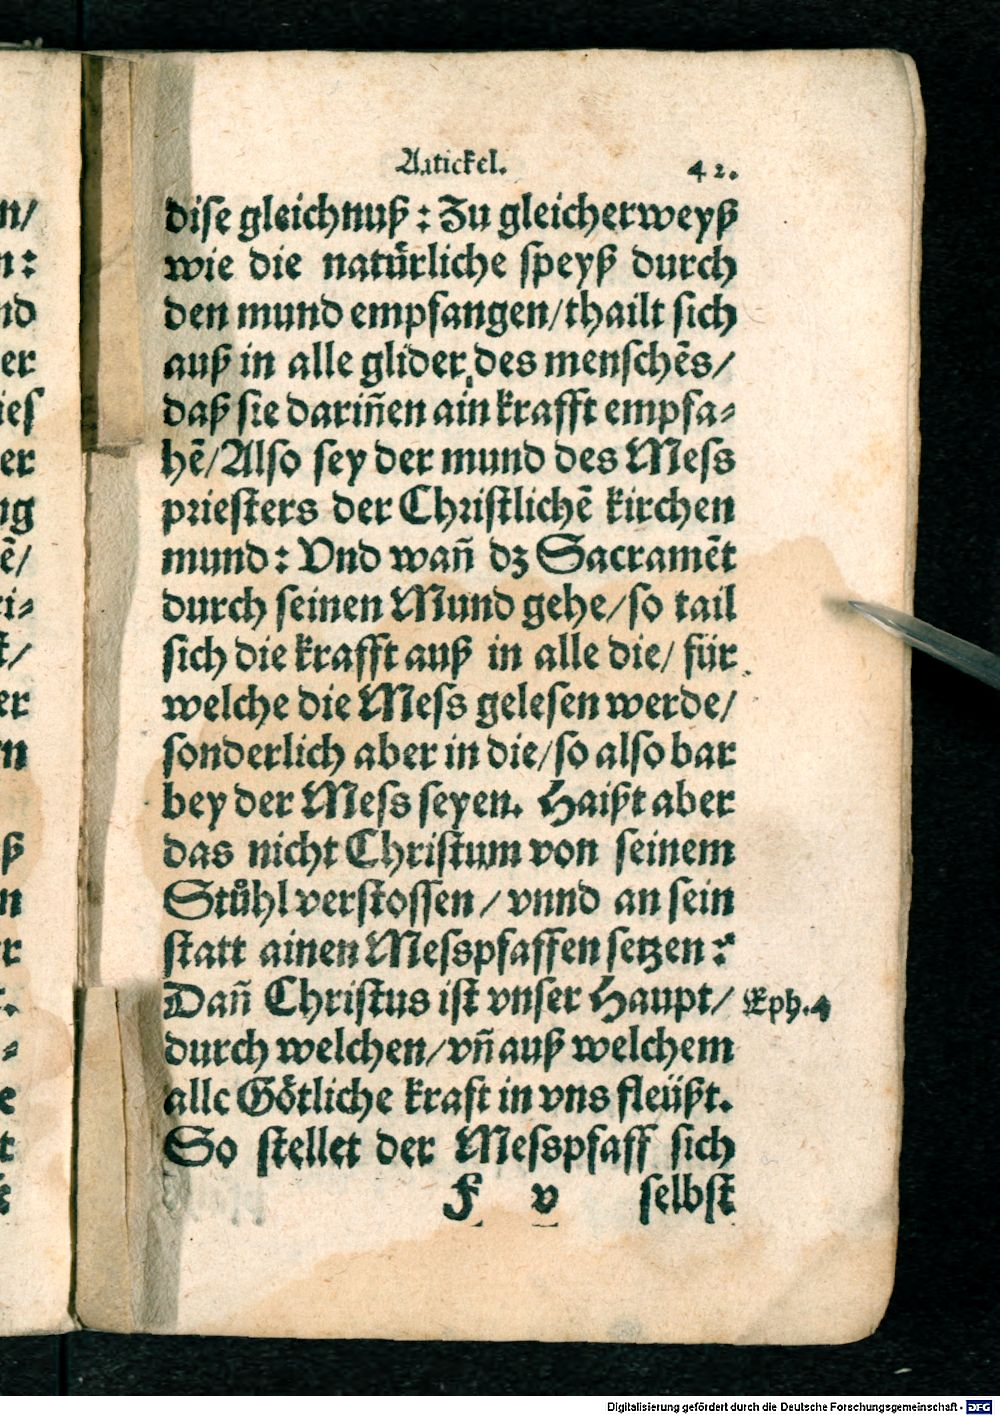 Artickel. 42.
dise gleichnuß: Zu gleicherweyß
wie die natürliche speyß durch
den mund empfangen/thailt sich
auß in alle glider des menschẽs/
daß sie dariñen ain krafft empfa-
hẽ/Also sey der mund des Mess
priesters der Christlichẽ kirchen
mund: Vnd wañ dz Sacramẽt
durch seinen Mund gehe/so tail
sich die krafft auß in alle die/ für
welche die Mess gelesen werde/
sonderlich aber in die/so also bar
bey der Mess seyen. Haißt aber
das nicht Christum von seinem
Stůhl verstossen/ vnnd an sein
statt ainen Messpfaffen setzen?
Dañ Christus ist vnser Haupt/ Eph. 4
durch welchen/vñ auß welchem
alle Götliche kraft in vns fleüßt.
So stellet der Messpfaff sich
F v selbst
Digitalisierung gefördert durch die Deutsche Forschungsgemeinschaft - DFG